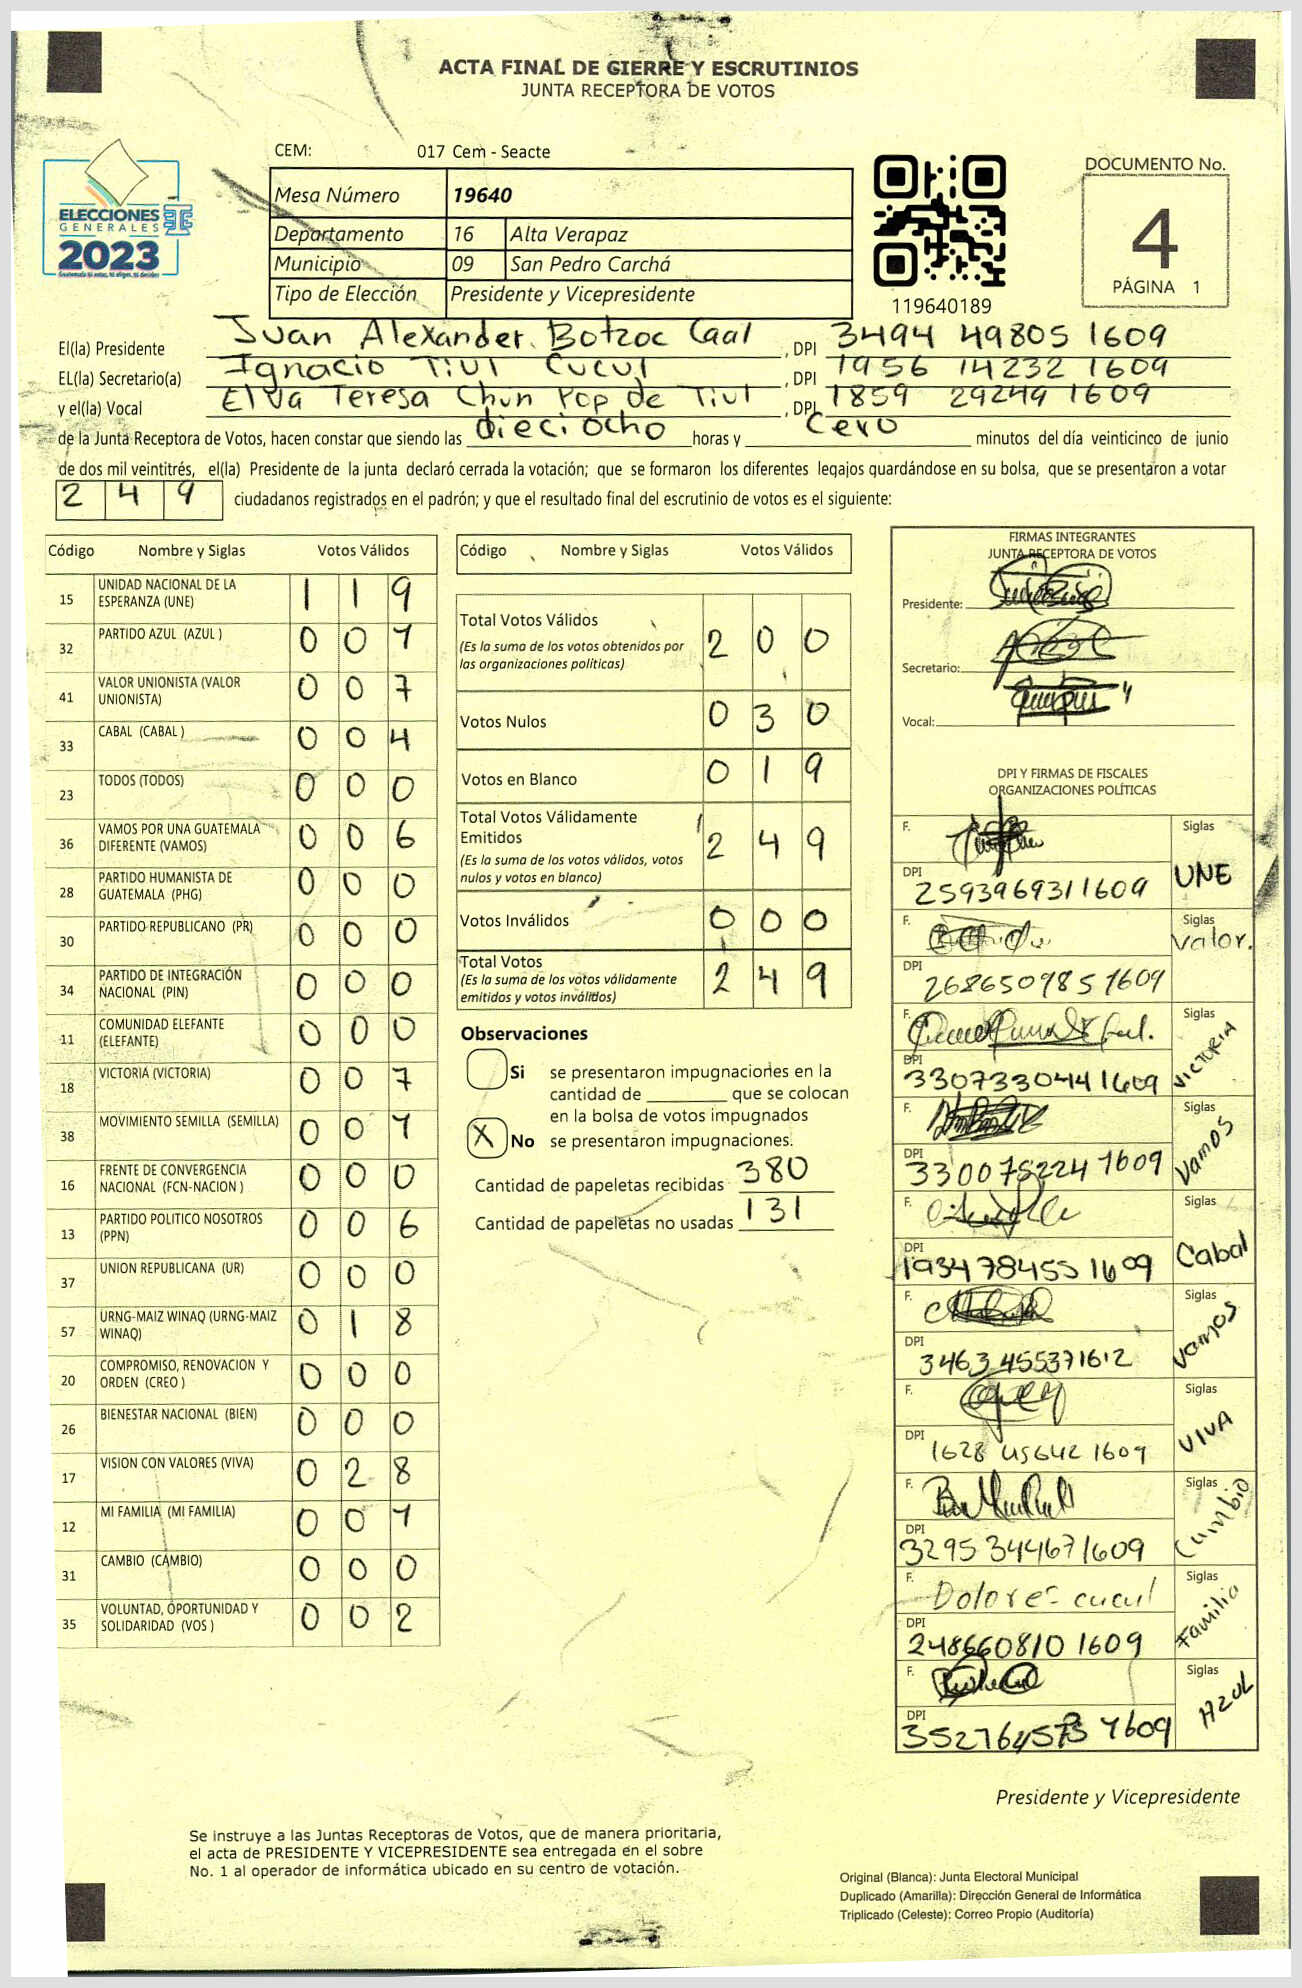 ACTA FINAL DE CIERRE Y ESCRUTINIOS
JUNTA RECEPTORA DE VOTOS
ELECCIONES
GENERALES
2023
CEM: 017 Cem - Seacte
Mesa Número 19640
Departamento 16 Alta Verapaz
Municipio 09 San Pedro Carchá
Tipo de Elección Presidente y Vicepresidente
119640189
DOCUMENTO No.
4
PÁGINA 1
El(la) Presidente Juan Alexander Botzoc Caal, DPI 3494 49805 1609
EL(la) Secretario(a) Ignacio Tiul Cucul, DPI 1956 14232 1609
y el(la) Vocal Elva Teresa Chun Pop de Tiul, DPI 1859 29249 1609
de la Junta Receptora de Votos, hacen constar que siendo las dieciocho horas y Cero minutos del día veinticinco de junio
de dos mil veintitrés, el(la) Presidente de la junta declaró cerrada la votación; que se formaron los diferentes legajos guardándose en su bolsa, que se presentaron a votar
2 4 9 ciudadanos registrados en el padrón; y que el resultado final del escrutinio de votos es el siguiente:
Código Nombre y Siglas Votos Válidos
15 UNIDAD NACIONAL DE LA ESPERANZA (UNE) 1 1 9
32 PARTIDO AZUL (AZUL ) 0 0 1
41 VALOR UNIONISTA (VALOR UNIONISTA) 0 0 7
33 CABAL (CABAL ) 0 0 4
23 TODOS (TODOS) 0 0 0
36 VAMOS POR UNA GUATEMALA DIFERENTE (VAMOS) 0 0 6
28 PARTIDO HUMANISTA DE GUATEMALA (PHG) 0 0 0
30 PARTIDO REPUBLICANO (PR) 0 0 0
34 PARTIDO DE INTEGRACIÓN NACIONAL (PIN) 0 0 0
11 COMUNIDAD ELEFANTE (ELEFANTE) 0 0 0
18 VICTORIA (VICTORIA) 0 0 7
38 MOVIMIENTO SEMILLA (SEMILLA) 0 0 1
16 FRENTE DE CONVERGENCIA NACIONAL (FCN-NACION ) 0 0 0
13 PARTIDO POLITICO NOSOTROS (PPN) 0 0 6
37 UNION REPUBLICANA (UR) 0 0 0
57 URNG-MAIZ WINAQ (URNG-MAIZ WINAQ) 0 1 8
20 COMPROMISO, RENOVACION Y ORDEN (CREO ) 0 0 0
26 BIENESTAR NACIONAL (BIEN) 0 0 0
17 VISION CON VALORES (VIVA) 0 2 8
12 MI FAMILIA (MI FAMILIA) 0 0 1
31 CAMBIO (CAMBIO) 0 0 0
35 VOLUNTAD, OPORTUNIDAD Y SOLIDARIDAD (VOS ) 0 0 2
Código Nombre y Siglas Votos Válidos
Total Votos Válidos 2 0 0
(Es la suma de los votos obtenidos por
las organizaciones políticas)
Votos Nulos 0 3 0
Votos en Blanco 0 1 9
Total Votos Válidamente
Emitidos 2 4 9
(Es la suma de los votos válidos, votos
nulos y votos en blanco)
Votos Inválidos 0 0 0
Total Votos 2 4 9
(Es la suma de los votos válidamente
emitidos y votos inválidos)
Observaciones
Si se presentaron impugnaciones en la
cantidad de ________ que se colocan
en la bolsa de votos impugnados
X No se presentaron impugnaciones.
Cantidad de papeletas recibidas 380
Cantidad de papeletas no usadas 131
FIRMAS INTEGRANTES
JUNTA RECEPTORA DE VOTOS
Presidente:
Secretario:
Vocal:
DPI Y FIRMAS DE FISCALES
ORGANIZACIONES POLÍTICAS
F. Siglas UNE
DPI 2593969311609
F. Siglas Valor.
DPI 2686509851609
F. Siglas VICTORIA
DPI 3307330441609
F. Siglas Vamos
DPI 3300752241609
F. Siglas Cabal
DPI 1934784551609
F. Siglas Vamos
DPI 3463455371612
F. Siglas VIVA
DPI 1628 45642 1609
F. Siglas
DPI 3295344671609
F. Dolores cucul Siglas Familia
DPI 2486608101609
F. Siglas AZUL
DPI
Presidente y Vicepresidente
Se instruye a las Juntas Receptoras de Votos, que de manera prioritaria,
el acta de PRESIDENTE Y VICEPRESIDENTE sea entregada en el sobre
No. 1 al operador de informática ubicado en su centro de votación.
Original (Blanca): Junta Electoral Municipal
Duplicado (Amarilla): Dirección General de Informática
Triplicado (Celeste): Correo Propio (Auditoría)